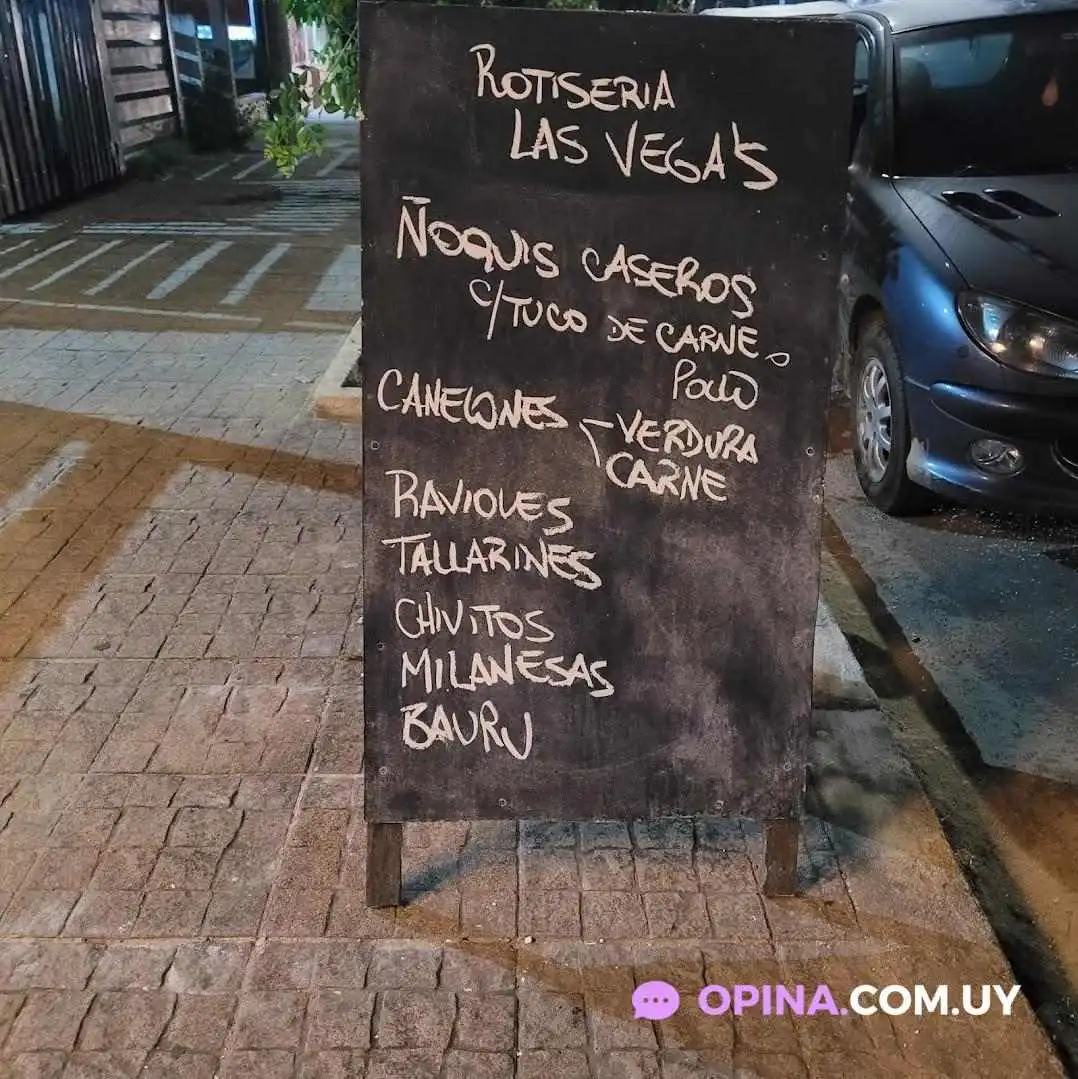 ROTISERIA
LAS VEGA'S
ÑOQUIS CASEROS
C/TUCO DE CARNE O
POLLO
CANELONES - VERDURA
CARNE
RAVIOLES
TALLARINES
CHIVITOS
MILANESAS
BAURU
OPINA.COM.UY